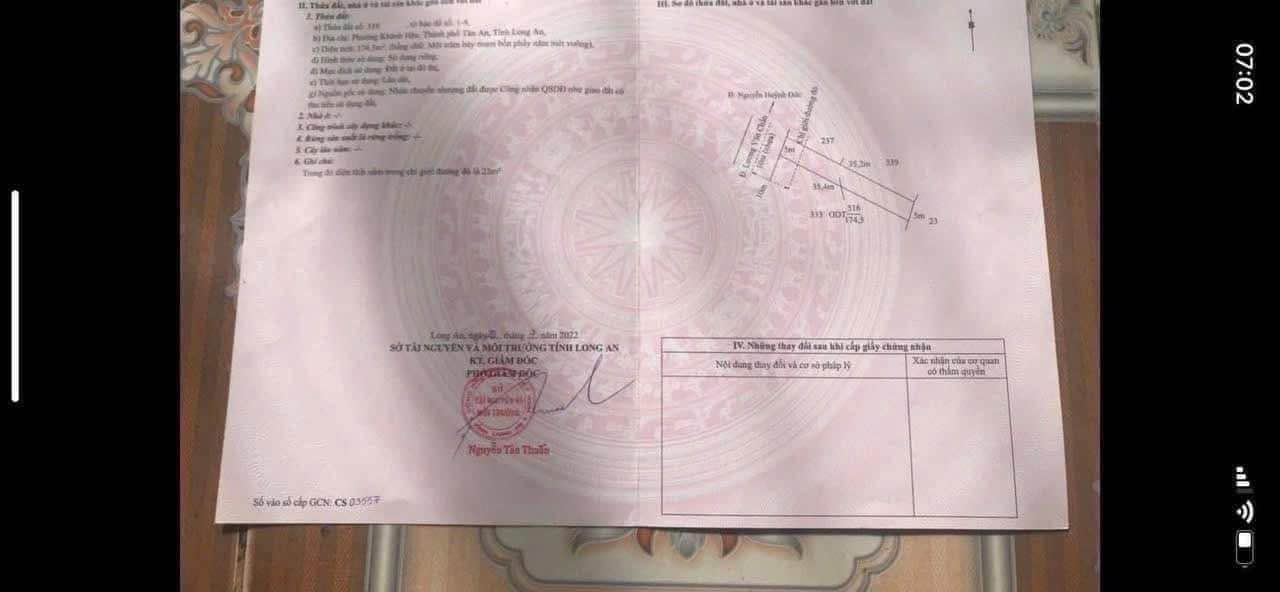 II. Thửa đất, nhà ở và tài sản khác gắn liền với đất
1. Thửa đất:
a) Thửa đất số: , tờ bản đồ số: 1-9,
b) Địa chỉ: Phường Khánh Hậu, Thành phố Tân An, Tỉnh Long An,
c) Diện tích: 174,5m², (bằng chữ: Một trăm bảy mươi bốn phẩy năm mét vuông),
d) Hình thức sử dụng: Sử dụng riêng,
đ) Mục đích sử dụng: Đất ở tại đô thị,
e) Thời hạn sử dụng: Lâu dài,
g) Nguồn gốc sử dụng: Nhận chuyển nhượng đất được Công nhận QSDĐ như giao đất có
thu tiền sử dụng đất.
2. Nhà ở: -/-
3. Công trình xây dựng khác: -/-
4. Rừng sản xuất là rừng trồng: -/-
5. Cây lâu năm: -/-
6. Ghi chú:
Trong đó diện tích nằm trong chỉ giới đường đỏ là 23m²
Long An, ngày tháng năm 2022
SỞ TÀI NGUYÊN VÀ MÔI TRƯỜNG TỈNH LONG AN
KT. GIÁM ĐỐC
PHÓ GIÁM ĐỐC
SỞ
TÀI NGUYÊN VÀ
MÔI TRƯỜNG
Nguyễn Tân Thuấn
Số vào sổ cấp GCN: CS 03557
III. Sơ đồ thửa đất, nhà ở và tài sản khác gắn liền với đất
Đ. Nguyễn Huỳnh Đức
Đ. Lương Văn Chấn
(nhựa)
10m
5m
Chỉ giới đường đỏ
237
35,2m
339
35,4m
333 ODT 516
174,5
5m
23
IV. Những thay đổi sau khi cấp giấy chứng nhận
Nội dung thay đổi và cơ sở pháp lý
Xác nhận của cơ quan
có thẩm quyền
07:02